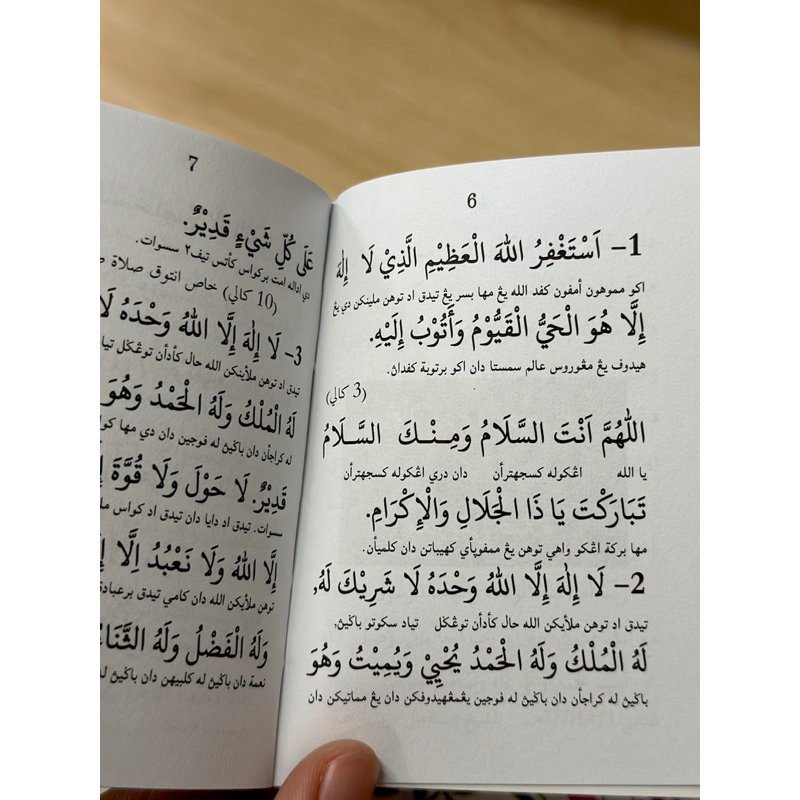 6
1– اَسْتَغْفِرُ اللهَ الْعَظِيْمِ الَّذِيْ لَا إِلٰهَ
اكو مموهون أمفون كفد الله يڠ مها بسر يڠ تيدق اد توهن ملينكن دي يڠ
إِلَّا هُوَ الْحَيُّ الْقَيُّوْمُ وَأَتُوْبُ إِلَيْهِ.
هيدوف يڠ مڠوروس عالم سمستا دان اكو برتوبة كفداڽ.
(3 كالي)
اللّٰهُمَّ اَنْتَ السَّلَامُ وَمِنْكَ السَّلَامُ
يا الله اڠكوله كسجهترأن دان دري اڠكوله كسجهترأن
تَبَارَكْتَ يَا ذَا الْجَلَالِ وَالْإِكْرَامِ.
مها بركة اڠكو واهي توهن يڠ ممفوڽأي كهيباتن دان كلميأن.
2– لَا إِلٰهَ إِلَّا اللهُ وَحْدَهُ لَا شَرِيْكَ لَهُ,
تيدق اد توهن ملأينكن الله حال كأدأن توڠݢل تياد سكوتو باݢيڽ,
لَهُ الْمُلْكُ وَلَهُ الْحَمْدُ يُحْيِيْ وَيُمِيْتُ وَهُوَ
باݢيڽ له كراجأن دان باݢيڽ له فوجين يڠمڠهيدوفكن دان يڠ مماتيكن دان
7
عَلَى كُلِّ شَيْءٍ قَدِيْرٌ.
دي اداله امت بركواس كأتس تيف٢ سسوات.
(10 كالي) خاص انتوق صلاة
3– لَا إِلٰهَ إِلَّا اللهُ وَحْدَهُ
تيدق اد توهن ملأينكن الله حال كأدأن توڠݢل
لَهُ الْمُلْكُ وَلَهُ الْحَمْدُ وَهُوَ
له كراجأن دان باݢيڽ له فوجين دان دي مها
قَدِيْرٌ. لَا حَوْلَ وَلَا قُوَّةَ
سسوات. تيدق اد دايا دان تيدق اد كواس
إِلَّا اللهُ وَلَا نَعْبُدُ اِلَّا
توهن ملأينكن الله دان كامي تيدق برعبادة
وَلَهُ الْفَضْلُ وَلَهُ الثَّنَاءُ
نعمة دان باݢيڽ له كلبيهن دان باݢيڽ